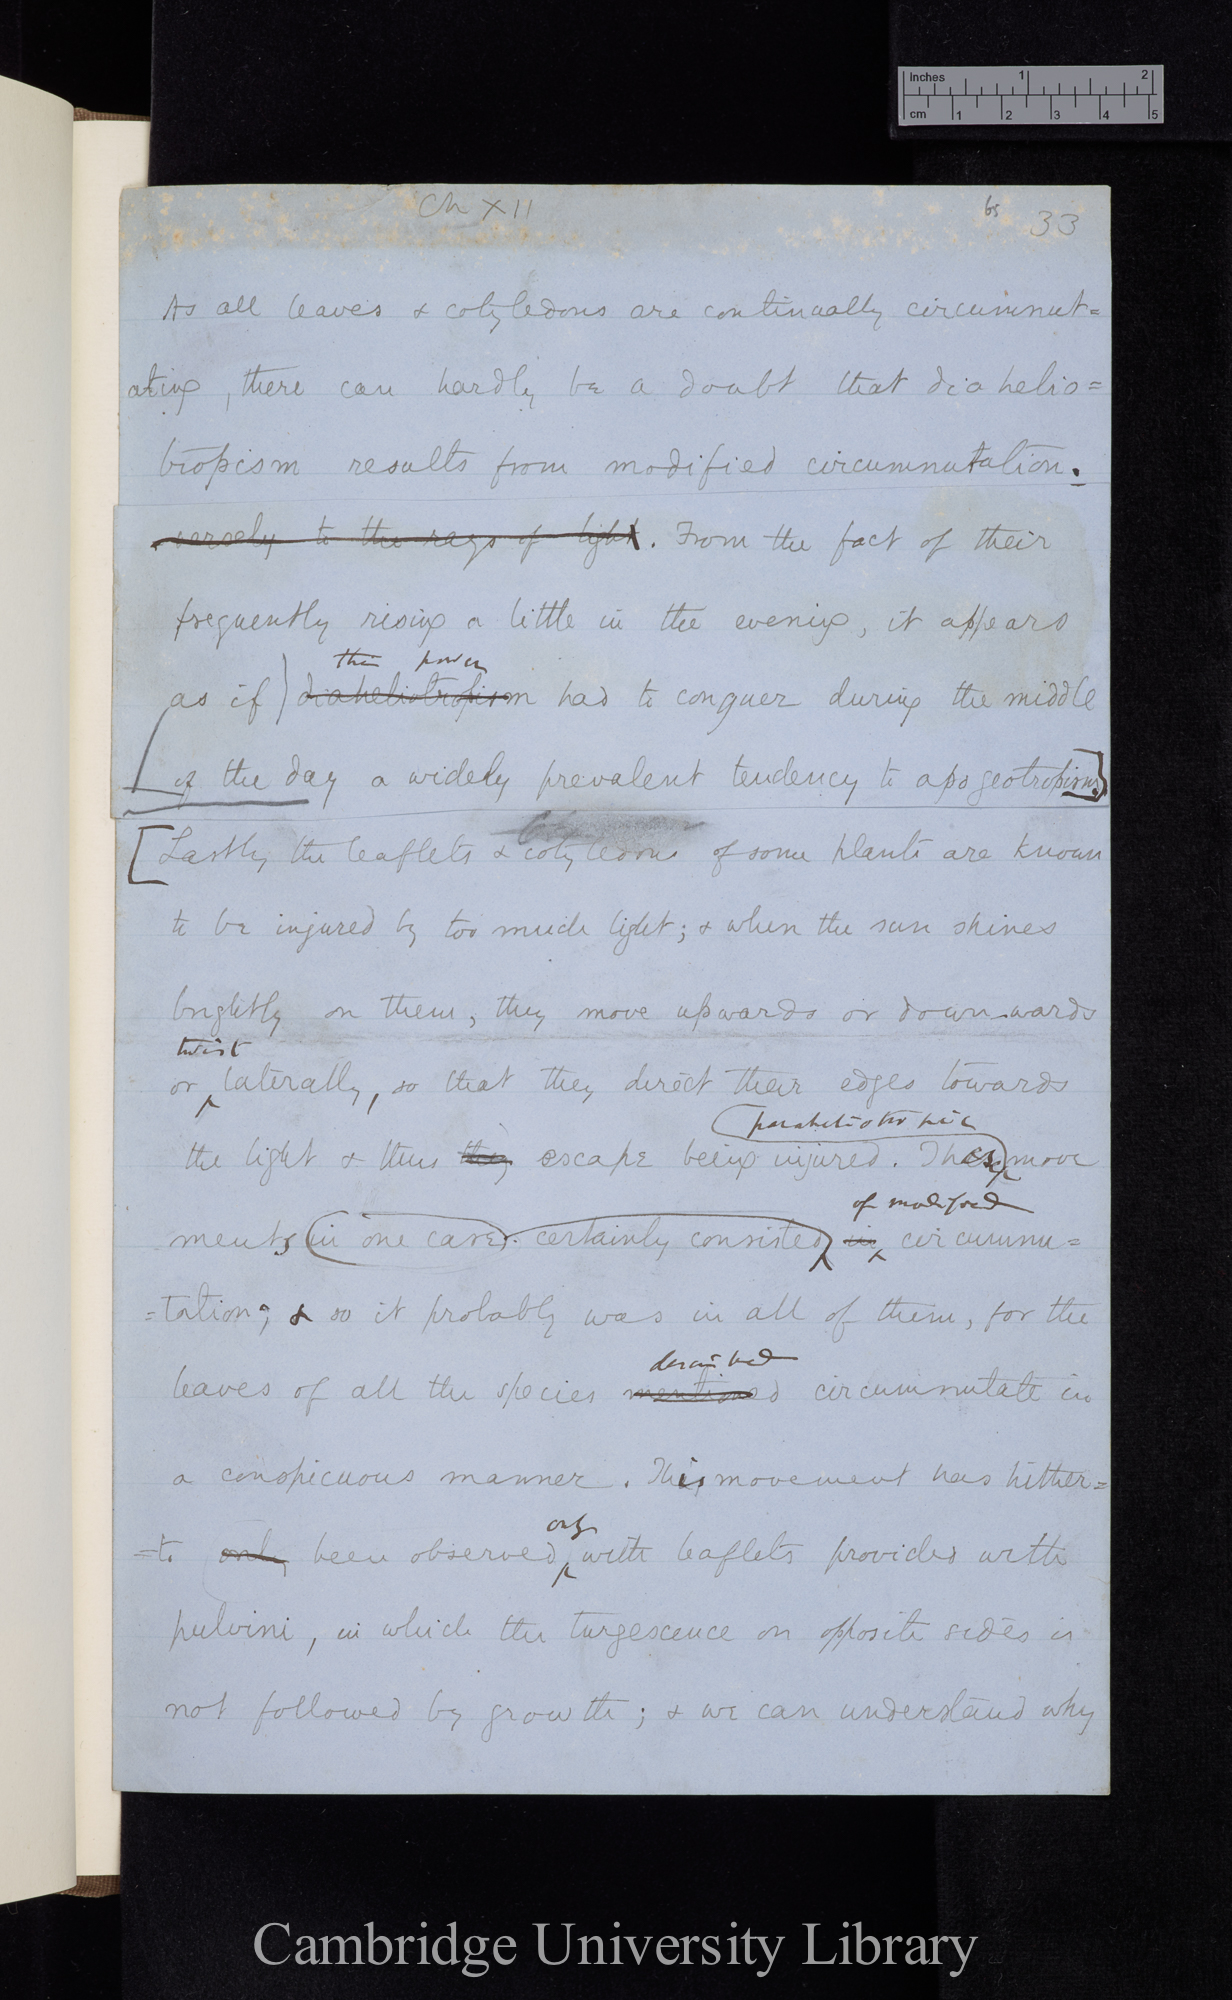 Inches 1 2
cm 1 2 3 4 5
Ch XII
65 33
As all leaves & cotyledons are continually circumnut=
ating, there can hardly be a doubt that diahelio=
tropism results from modified circumnutation.
versely to the rays of light. From the fact of their
frequently rising a little in the evening, it appears
this power
as if diaheliotropism had to conquer during the middle
of the day a widely prevalent tendency to apogeotropism.]
[Lastly the leaflets & cotyledons of some plants are known
to be injured by too much light; & when the sun shines
brightly on them, they move upwards or downwards
twist
or laterally, so that they direct their edges towards
paraheliotropic
the light & thus they escape being injured. These move
of modified
ments in one case certainly consisted in circumnu=
=tation; & so it probably was in all of them, for the
described
leaves of all the species mentioned circumnutate in
a conspicuous manner. This movement has hither=
only
=to only been observed with leaflets provided with
pulvini, in which the turgescence on opposite sides is
not followed by growth; & we can understand why
Cambridge University Library